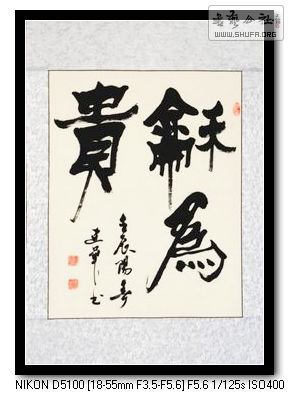 書藝公社
WWW.SHUFA.ORG
龢為
貴
壬辰陽春
NIKON D5100 [18-55mm F3.5-F5.6] F5.6 1/125s ISO400